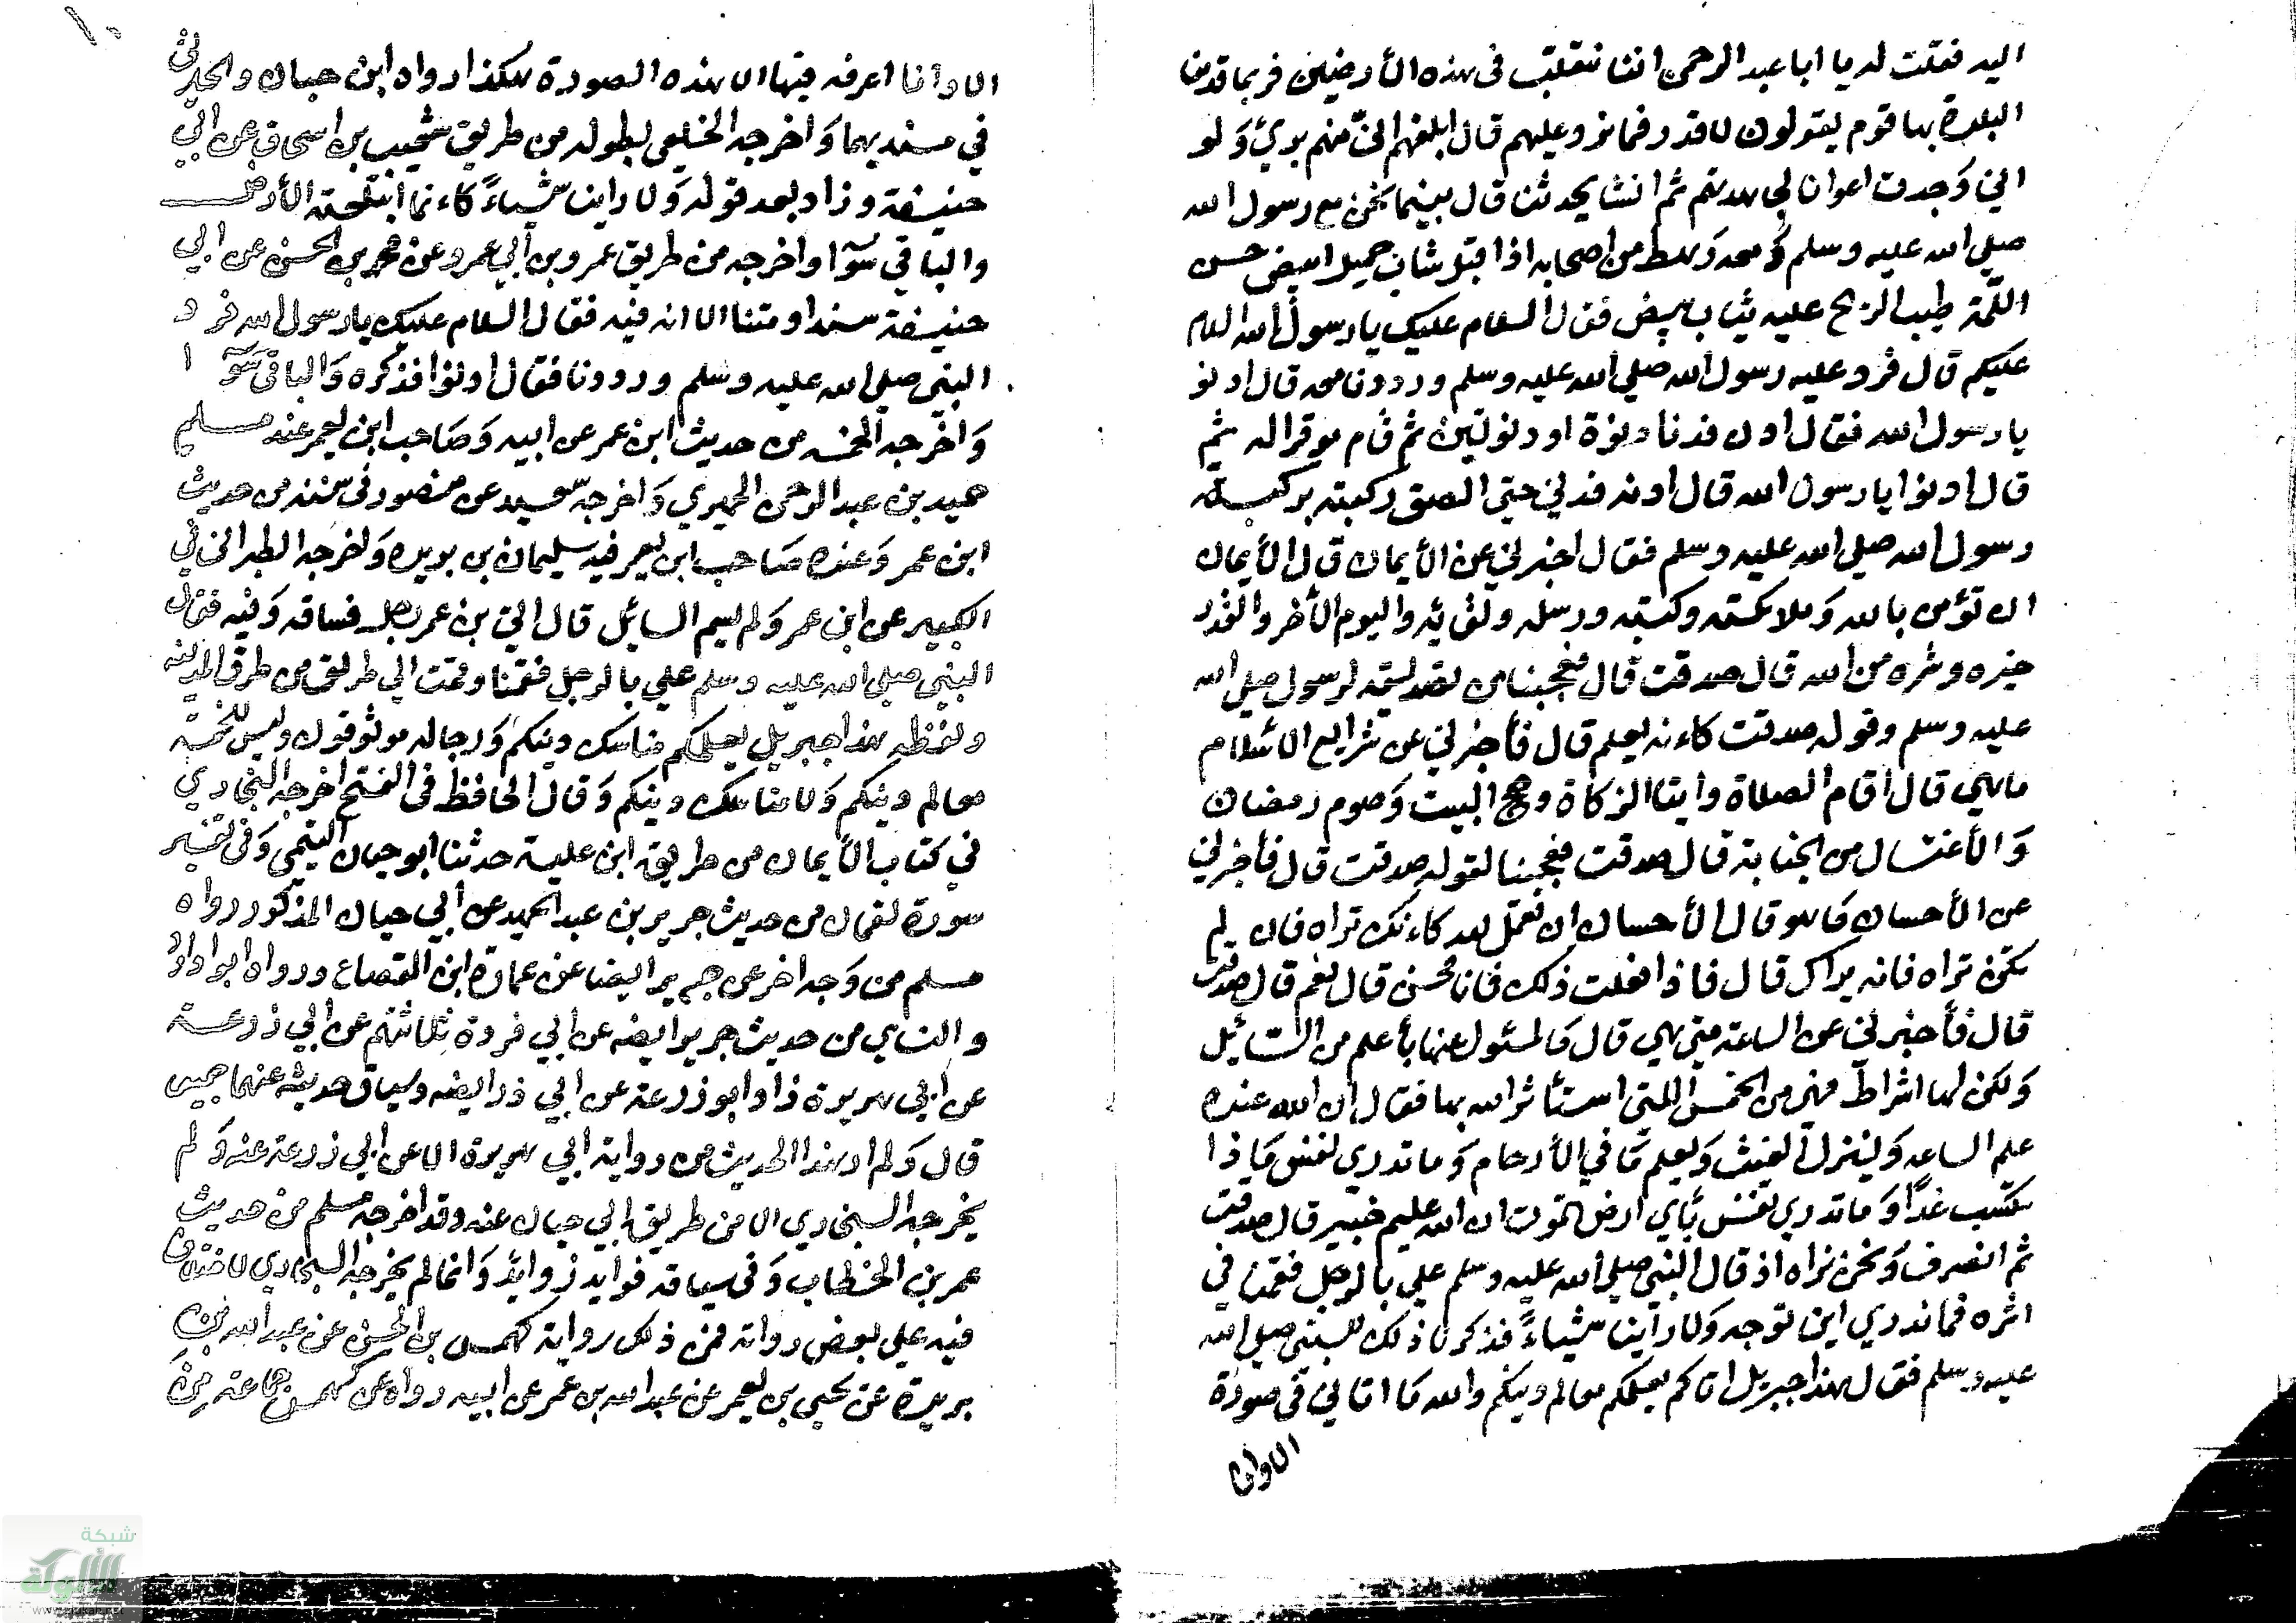 اليه فقلت له يا ابا عبد الرحمن اننا نتقلب فى هذه الأرضين فربما قدمنا
البلدة بها قوم يقولون لا قدر فما نرد عليهم قال ابلغهم انى منهم برئ وَلو
انى وَجدت اعوانا لجاهدتهم ثم انشا يحدثنا قال بينما نحن مع رسول الله
صلى الله عليه وسلم وَمعه رهط من اصحابه اذ اقبل شاب جميل ابيض حسن
اللمّة طيب الريح عليه ثياب بيض فقال السلام عليك يا رسول الله السلام
عليكم قال فرد عليه رسول الله صلى الله عليه وسلم ورددنا معه قال ادنو
يا رسول الله فقال ادن فدنا دنوة او دنوتين ثم قام موقرا له ثم
قال ادنوا يا رسول الله قال ادنه فدنى حتى الصق ركبته بركبة
رسول الله صلى الله عليه وسلم فقال اخبرني عن الأيمان قال الأيمان
ان تؤمن بالله وَملائكته وكتبه ورسله ولقائه واليوم الأخر والقدر
خيره وشره من الله قال صدقت قال فعجبنا من تصديقه لرسول صلى الله
عليه وسلم وقوله صدقت كاءنه يعلم قال فأخبرني عن شرايع الاسلام
ماهي قال اقام الصلاة وايتا الزكاة وحج البيت وَصوم رمضان
وَالأغتسال من الجنابة قال صدقت فعجبنا لقوله صدقت قال فأخبرني
عن الأحسان مَاهو قال الأحسان ان تعمل لله كاءنك تراه فان لم
تكن تراه فانه يراك قال فاذا فعلت ذلك فانا محسن قال نعم قال صدقت
قال فأخبرنى عن الساعة متى هي قال مَا المسئول عنها بأعلم من السّائل
وَلكن لها اشراطّ فهى من الخمس اللتى استأثر الله بها فقال ان الله عنده
علم الساعه وَينزل الغيث وَيعلم مَا في الأرحام وَما تدري نفس مَاذا
تكسب غدًا وَما تدري نفس بأي ارض تموت ان الله عليم خبير قال صدقت
ثم انصرف وَنحن نراه اذ قال النبي صلى الله عليه وسلم علي بالرجل فقمنا في
اثره فما ندري اين توجه وَلا رأينا شياءً فذكرنا ذلك للنبى صلى الله
عليه وسلم فقال هذا جبريل اتاكم يعلمكم معالم دينكم والله مَا اتانى فى صورة
الاوانا
الا وانا اعرفه فيها الا هذه الصورة هكذا رواه ابن حبان والحارثى
في مسنديهما وَاخرجه الخلعي بطوله من طريق شعيب بن اسحاق عن ابي
حنيفة وزاد بعد قوله وَلا راينا شياءً كاءنما ابتلعته الأرض
والباقي سَوَا واخرجه من طريق عمرو بن أبي عمرو عن محمد بن الحسن عن ابي
حنيفة سندا ومتنا الا انه فيه فقال السلام عليك يا رسول الله فرد
النبي صلى الله عليه وسلم ورددنا فقال ادنوا فذكره وَالباقي سَوَا
وَاخرجه الخمسه من حديث ابن عمر عن ابيه وَصَاحب ابن يعمر عند مسلم
حميد بن عبد الرحمن الحميري وَاخرجه سعيد عن منصور فى سننه من حديث
ابن عمر وَعنده صَاحب ابن يعمر فيه سليمان بن بريده وَاخرجه الطبرانى في
الكبير عن ابن عمر وَلم يسم السايل قال اتى بن عمر رجل فساقه وَفيه فقال
النبي صلى الله عليه وسلم علي بالرجل فقمنا وقمت الى طريق من طرق المدينه
ولفظه هذا جبريل يعلمكم مناسك دينكم وَرجاله موثوقون وليس للخمسة
معالم دينكم وَلا مناسك دينكم وَقال الحافظ فى الفتح اخرجه البخاري
في كتاب الأيمان من طريق ابن علية حدثنا ابو حيان التيمي وَفى تفسير
سورة لقمان من حديث جرير بن عبد الحميد عن أبي حيان المذكور رواه
مسلم من وَجه اخر عن جرير ايضا عن عمارة ابن القعقاع ورواه ابو داود
والنساي من حديث جرير ايضه عن ابي فروة ثلاثتهم عن ابي زرعة
عن ابي هريرة زاد ابو زرعة عن ابي ذر ايضه وسياق حديثه عنهما جميعا
قال وَلم ار هذا الحديث من رواية ابي هريرة الا عن ابي زرعة عنه وَلم
يخرجه البخاري الا من طريق ابي حيان عنه وقد اخرجه مسلم من حديث
عمر بن الخطاب وَفى سياقه فوايد زوايد وَانما لم يخرجه البخاري لاختلاف
فيه على بعض رواته فمن ذلك رواية كهمس بن الحسن عن عبد الله بن
بريدة عن يحيى بن يعمر عن عبد الله بن عمر عن ابيه رواه عن كهمس جماعة من
شبكة
الألوكة
www.alukah.net